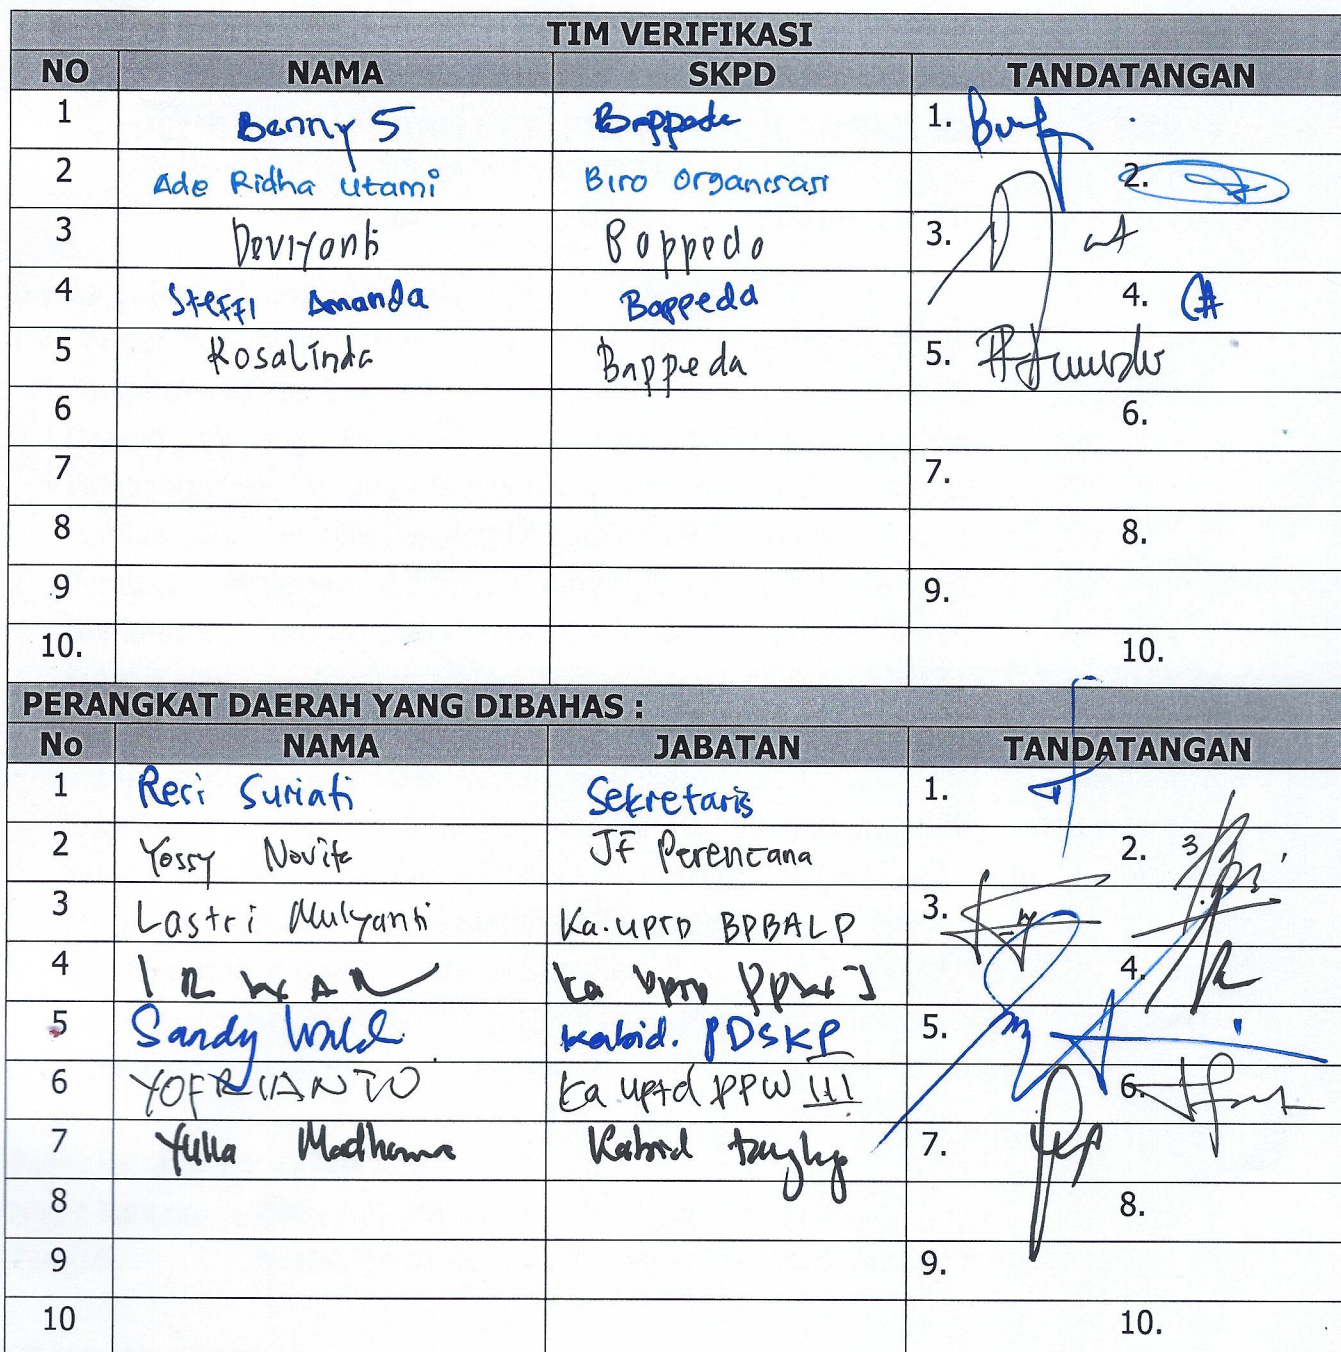 TIM VERIFIKASI
NO NAMA SKPD TANDATANGAN
1 Benny S Bappeda 1.
2 Ade Ridha Utami Biro Organisasi 2.
3 Deviyanti Bappeda 3.
4 Steffi Amanda Bappeda 4.
5 Rosalinda Bappeda 5.
6 6.
7 7.
8 8.
9 9.
10. 10.
PERANGKAT DAERAH YANG DIBAHAS :
No NAMA JABATAN TANDATANGAN
1 Reri Suriati Sekretaris 1.
2 Yossy Novita JF Perencana 2.
3 Lastri Mulyanti Ka. UPTD BPBALP 3.
4 IRWAN Ka UPTD PPW I 4.
5 Sandy Kabid. PDSKP 5.
6 YOFRIANTO Ka UPTD PPW III 6.
7 Yulia Kabid 7.
8 8.
9 9.
10 10.